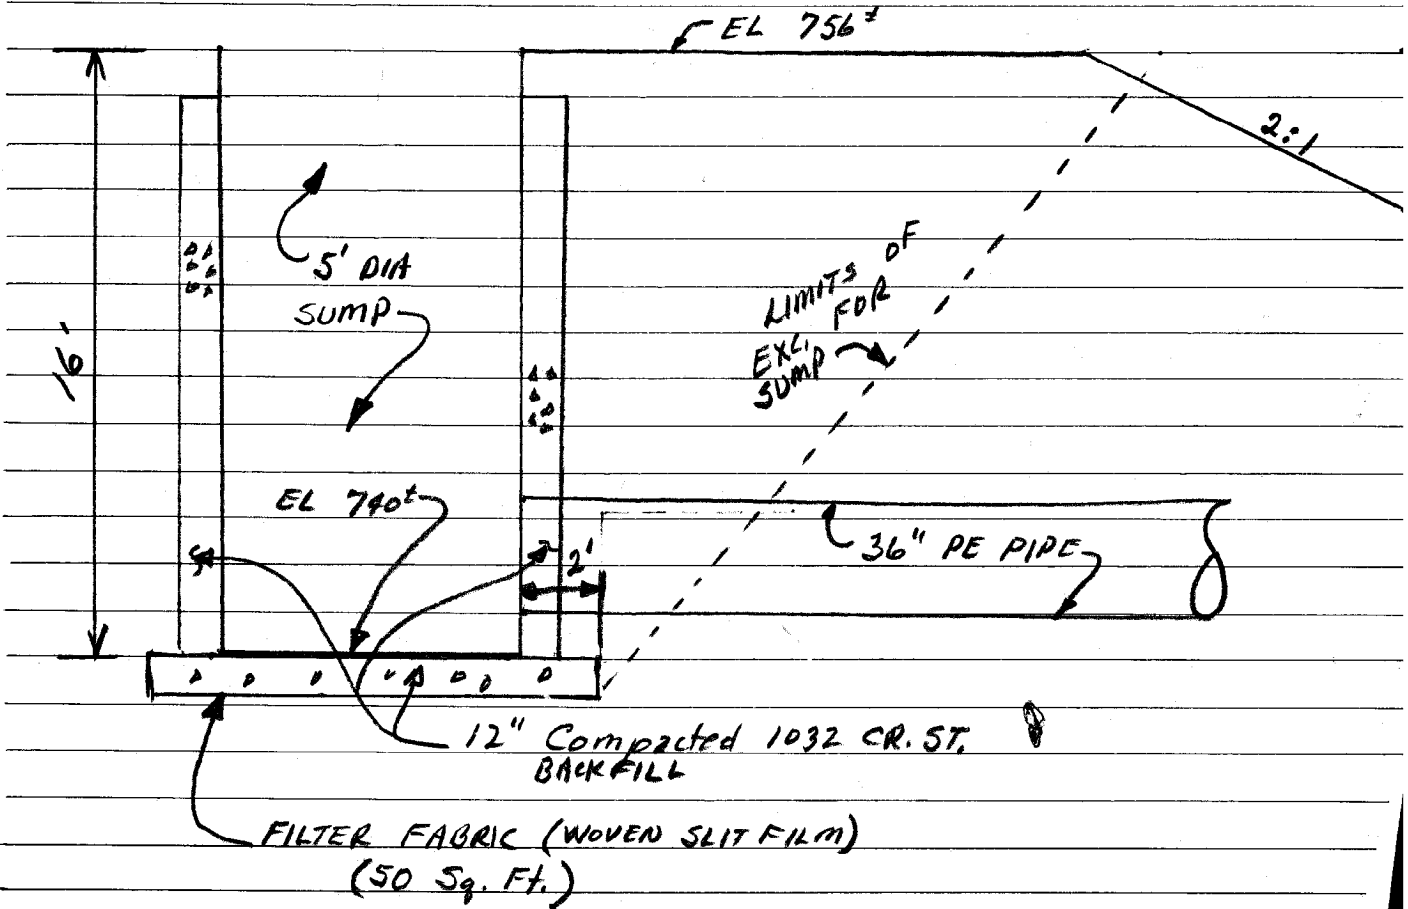 EL 756±
2:1
5' DIA
SUMP
LIMITS OF
EXC. FOR
SUMP
16'
EL 740±
2'
36" PE PIPE
12" Compacted 1032 CR. ST.
BACKFILL
FILTER FABRIC (WOVEN SLIT FILM)
(50 Sq. Ft.)